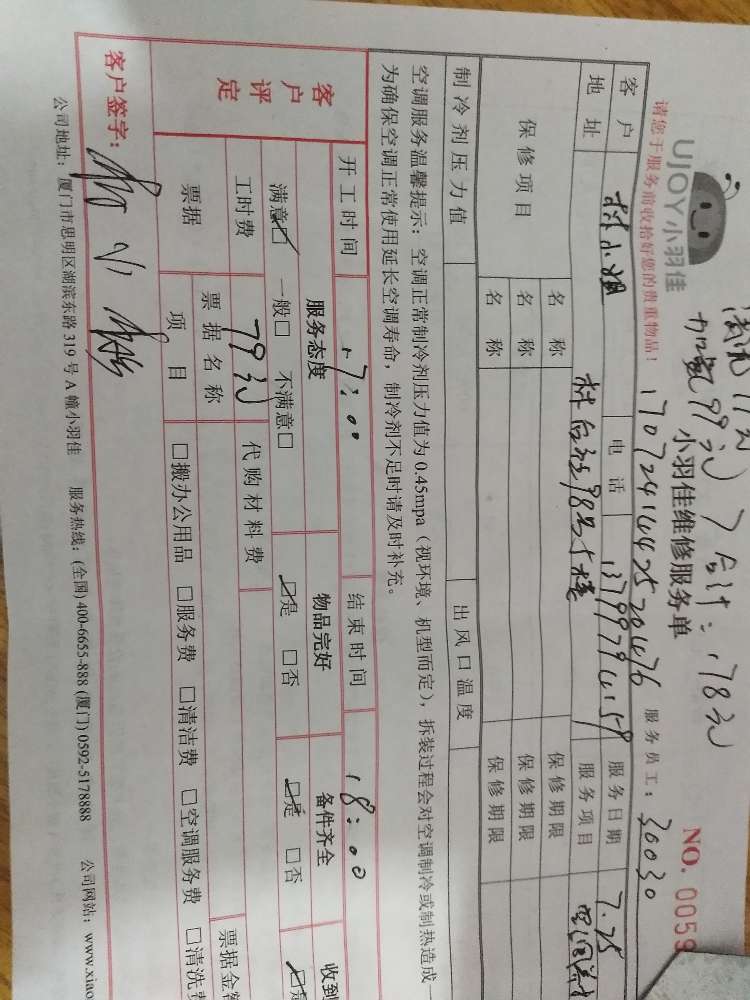 UJOY小羽佳
加氟99元 合计:178元
小羽佳维修服务单
NO. 0059
请您于服务前收拾好您的贵重物品!
1707241642520476
服务员工: 30030
客户 林小姐 电话 服务日期 7.25
地址 服务项目
保修项目 名称 保修期限
名称 保修期限
名称 保修期限
制冷剂压力值 出风口温度
空调服务温馨提示: 空调正常制冷剂压力值为0.45mpa(视环境、机型而定),拆装过程会对空调制冷或制热造成一
为确保空调正常使用延长空调寿命,制冷剂不足时请及时补充。
开工时间 17:00 结束时间 18:00
客户评定 服务态度 物品完好 备件齐全 收到
满意☑ 一般□ 不满意□ ☑是 □否 ☑是 □否 ☑是
工时费 79元 代购材料费
票据 票据名称 票据金额
项目 □搬办公用品 □服务费 □清洁费 □空调服务费 □清洗费
客户签字:
公司地址: 厦门市思明区湖滨东路319号A幢小羽佳 服务热线: (全国) 400-6655-888 (厦门) 0592-5178888 公司网站: www.xiao